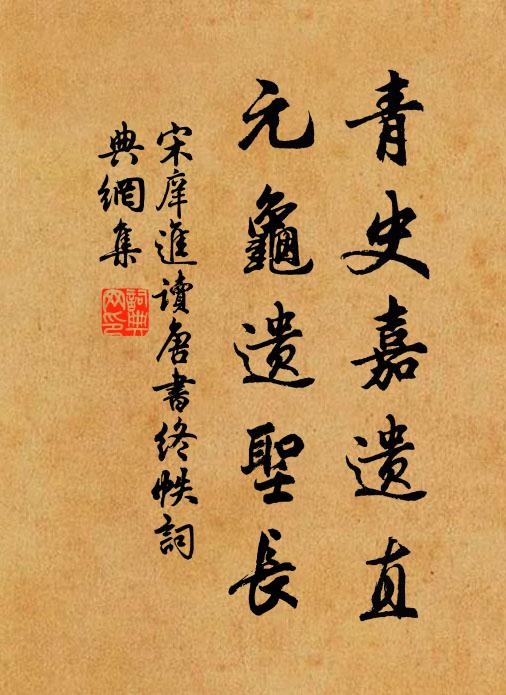 青史嘉遺直
元龜遺聖長
宋庠進讀唐書終帙詞
典網集
詞典
網印